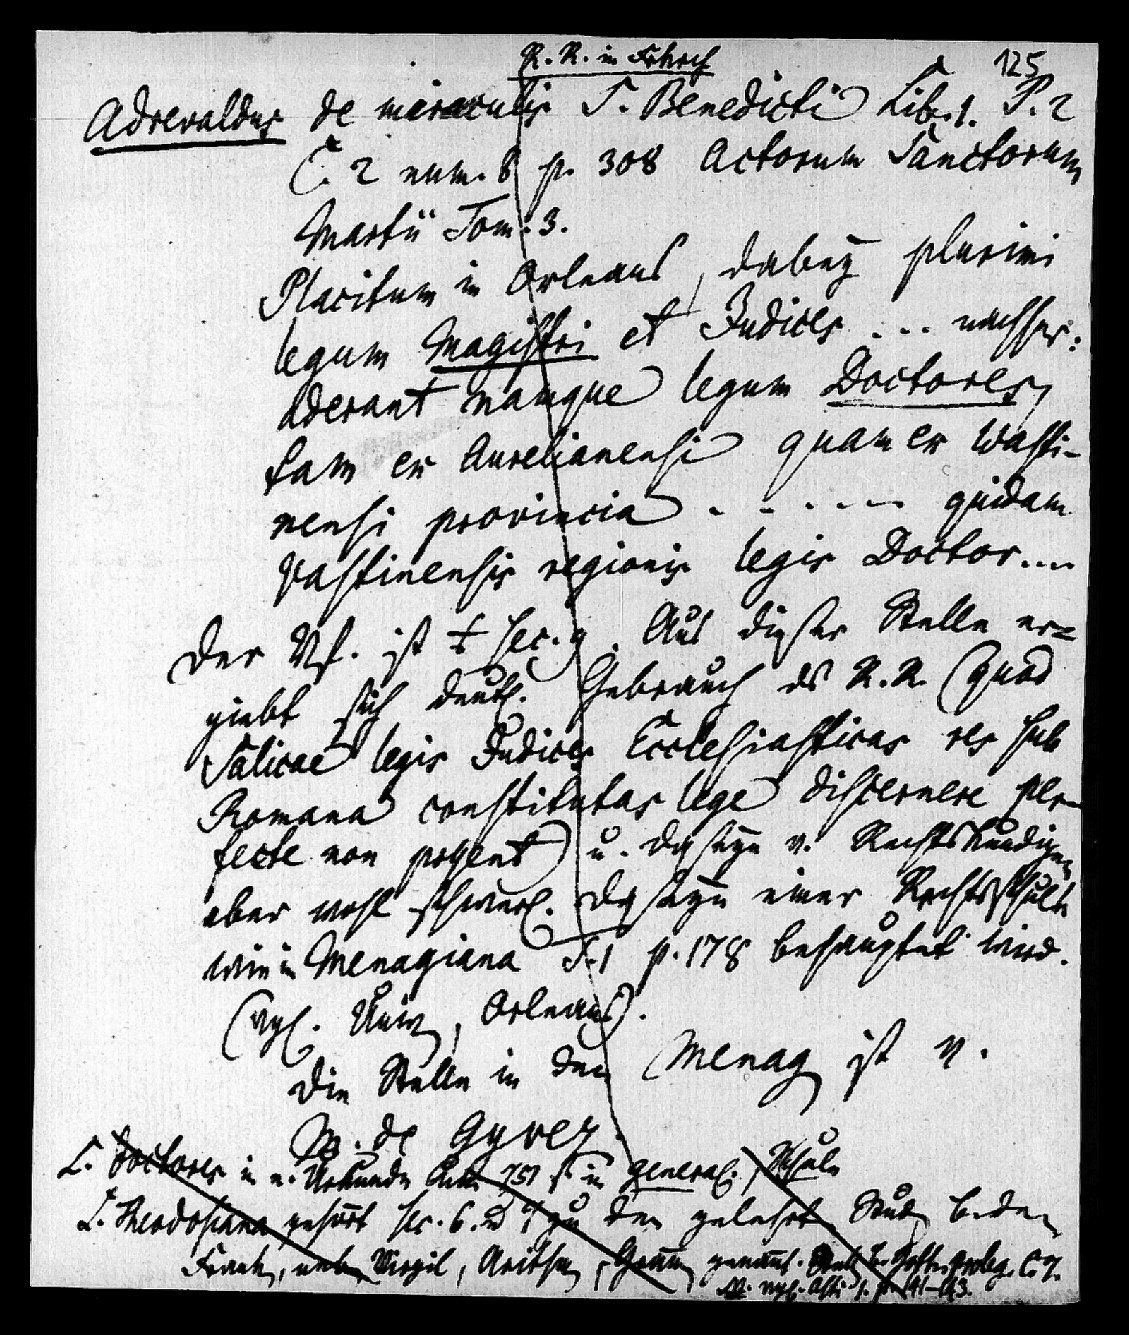 R. R. in Frkrch
125
Adrevaldus de miraculis S. Benedicti Lib. 1. P. 2
C. 2 num. 8 p. 308 Actorum Sanctorum
Martii Tom: 3.
Placitum in Orleans, dabey plurimi
legum Magistri et Judices ... nachher:
Aderant namque legum Doctores,
tam ex Aurelianensi quam ex Wasti-
nensi provincia . . . . . quidam
Vastinensis regionis legis Doctor....
Der Vf. ist sec. 9. Aus dieser Stelle er=
giebt sich deutl. Gebrauch des R. R. (quod
Salicae legis Judices Ecclesiasticas res sub
Romana constitutas lege discernere per-
fecte non possent) u. Daseyn v. Rechtskundigen
aber wohl schwerl. Daseyn einer Rechtsschule
wie in Menagiana T. 1 p. 178 behauptet wird.
(vgl. Univ, Orleans).
Die Stelle in den Menag ist v.
M. de Gyvez.
L. Doctores in e. Urkunde 751 s. in general. Schule
L. Theodosiana gehört sec. 6. zu den gelehrten Stud. b. den
Frank, neben Virgil, Arithm,